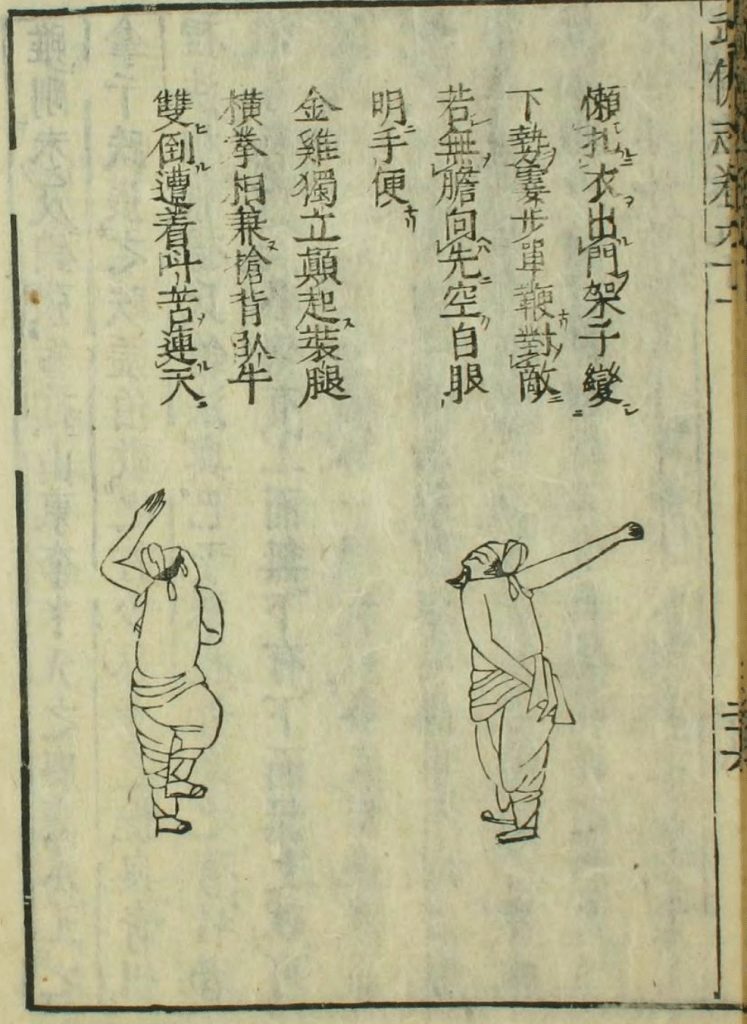 武備志卷九十一
懶扎衣出門架子變
下勢霎步單鞭對敵
若無膽向先空自眼
明手便
金雞獨立顛起裝腿
橫拳相兼搶背臥牛
雙倒遭着呌苦連天